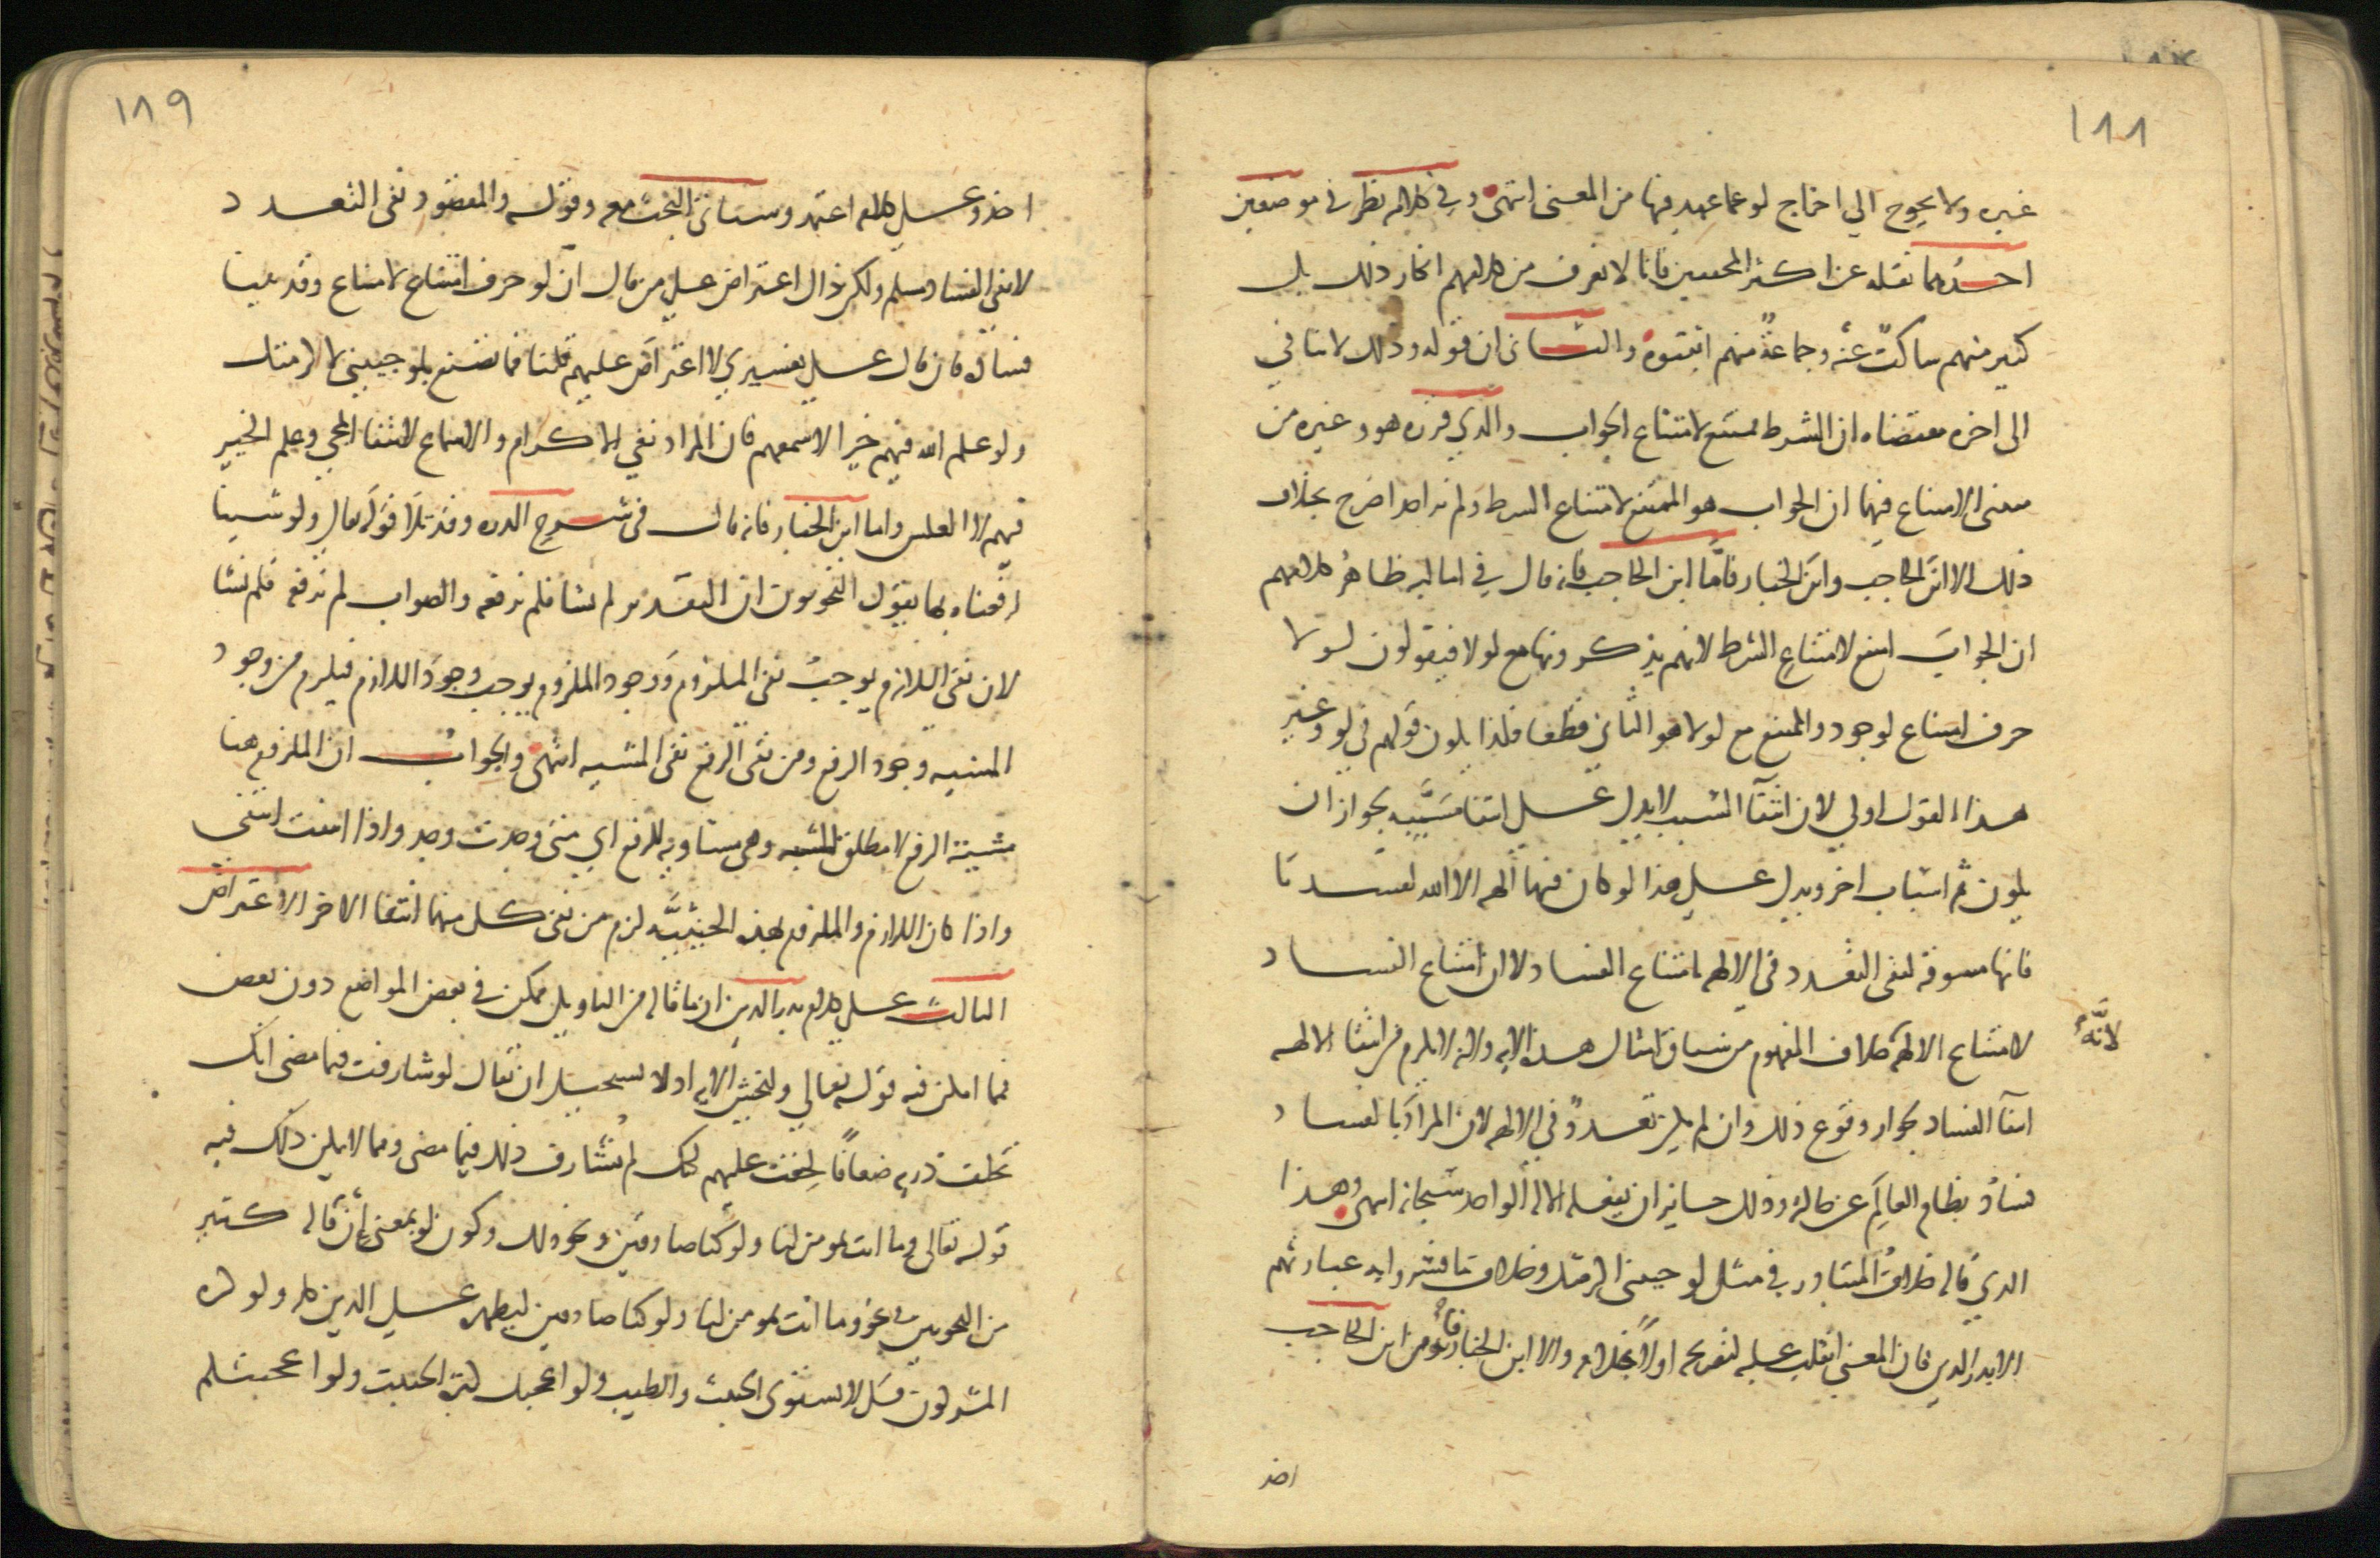 ١٨٨
غيره ولا يحوج الي اخراج لو عما عهد فيها من المعنى انتهى وفي كلامه نظر في موضعين
احدهما نقله عن اكثر المحققين فانا لا نعرف من كلامهم انكار ذلك بل
كثير منهم ساكت عنه وجماعة منهم اثبتوه والثاني ان قوله وذلك لا ينافي
الى اخره مقتضاه ان الشرط ممتنع لامتناع الجواب والذي قرره هو وغيره من
معنى الامتناع فيهما ان الجواب هو الممتنع لامتناع الشرط ولم نر احدا صرح بخلاف
ذلك الا ابن الحاجب وابن الخباز فاما ابن الحاجب فانه قال في اماليه ظاهر كلامهم
ان الجواب امتنع لامتناع الشرط لانهم يذكرونها مع لولا فيقولون لولا
حرف امتناع لوجود والممتنع مع لولا هو الثاني قطعا فكذا يكون قولهم في لو وغير
هذا القول اولي لان انتفا السبب لا يدل علي انتفا مسببه لجواز ان
يكون ثم اسباب اخر ويدل علي هذا لو كان فيهما الهه الا الله لفسدتا
فانها مسوقة لنفى التعدد في الالهه بامتناع الفساد لا ان امتناع الفساد
لامتناع الالهه لانه خلاف المفهوم من سياق امثال هذه الايه ولانه لا يلزم من انتفا الالهه
انتفا الفساد لجواز وقوع ذلك وان لم يكن تعدد في الالهه لان المراد بالفساد
فساد نظام العالم عن حاله وذلك جايز ان يفعله الاله الواحد سبحانه انتهى وهذا
الذي قاله خلاف المتبادر في مثل لو جيتني اكرمتك وخلاف ما فسروا به عبارتهم
الا بدر الدين فان المعنى انقلب عليه لتصريحه اولا بخلافه والا ابن الخباز فانه من ابن الحاجب
اخذ
١٨٩
اخذ وعلي كلامه اعتمد وسياتي البحث معه وقوله والمقصود نفى التعدد
لا نفى الفساد مسلم ولكن ذاك اعتراض علي من قال ان لو حرف امتناع لامتناع وقد بينا
فساده فان قال علي تفسيري لا اعتراض عليهم قلنا فما تصنع بلو جيتني لاكرمتك
ولو علم الله فيهم خيرا لاسمعهم فان المراد نفي الاكرام والاسماع لانتفا المجي وعلم الخير
فيهم لا العكس واما ابن الخباز فانه قال في شرح الدره وقد تلا قوله تعالى ولو شينا
لرفعناه بها يقول النحويون ان التقدير لم نشا فلم نرفعه والصواب لم نرفعه فلم نشا
لان نفى اللازم يوجب نفى الملزوم ووجود الملزوم يوجب وجود اللازم فيلزم من وجود
المشيه وجود الرفع ومن نفى الرفع نفى المشيه انتهى والجواب ان الملزوم هنا
مشيئة الرفع لا مطلق المشيه وهى مساويه للرفع اي متى وجدت وجد واذا انتفت انتفى
واذا كان اللازم والملزوم بهذه الحيثيه لزم من نفى كل منهما انتفا الاخر الاعتراض
الثالث علي كلام بدر الدين ان ما قاله من التاويل ممكن في بعض المواضع دون بعض
فمما امكن فيه قوله تعالي وليخش الايه اذ لا يستحيل ان يقال لو شارفت فيما مضى انك
تخلف ذريه ضعافا لخفت عليهم لكنك لم تشارف ذلك فيما مضى ومما لا يمكن ذلك فيه
قوله تعالى وما انت بمومن لنا ولو كنا صادقين ونحو ذلك وكون لو بمعنى ان قاله كثير
من النحويين في نحو وما انت بمومن لنا ولو كنا صادقين ليظهره علي الدين كله ولو كره
المشركون قل لا يستوى الخبيث والطيب ولو اعجبك كثرة الخبيث ولو اعجبتكم